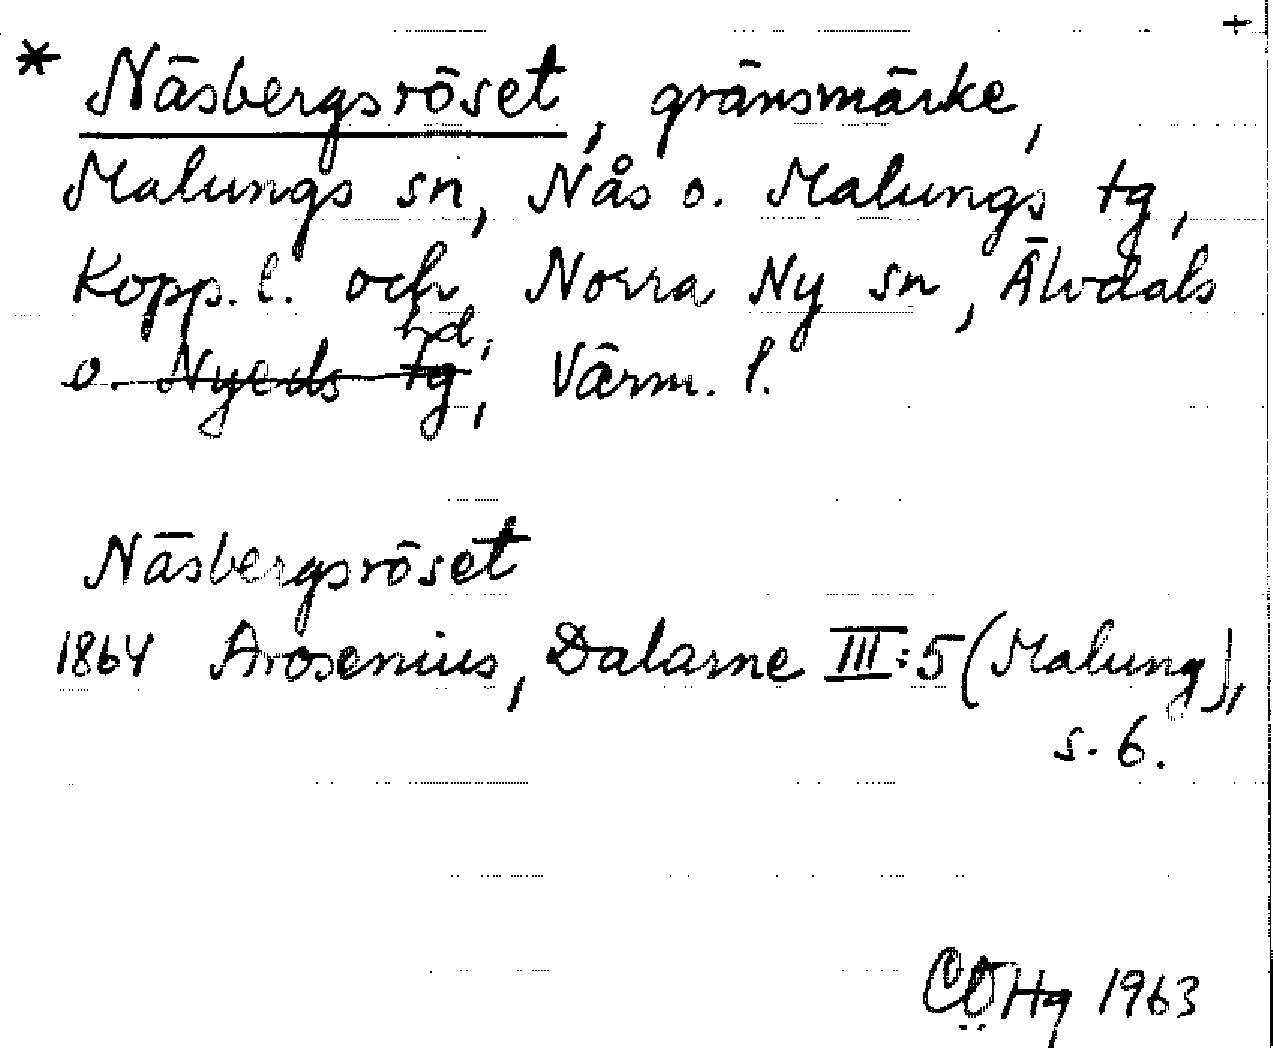 +
* Näsbergsröset, gränsmärke,
Malungs sn, Nås o. Malungs tg,
Kopp. l. och Norra Ny sn, Älvdals
hd,
o. Nyeds tg, Värm. l.
Näsbergsröset
1864 Arosenius, Dalarne III:5 (Malung),
s. 6.
CÖHg 1963